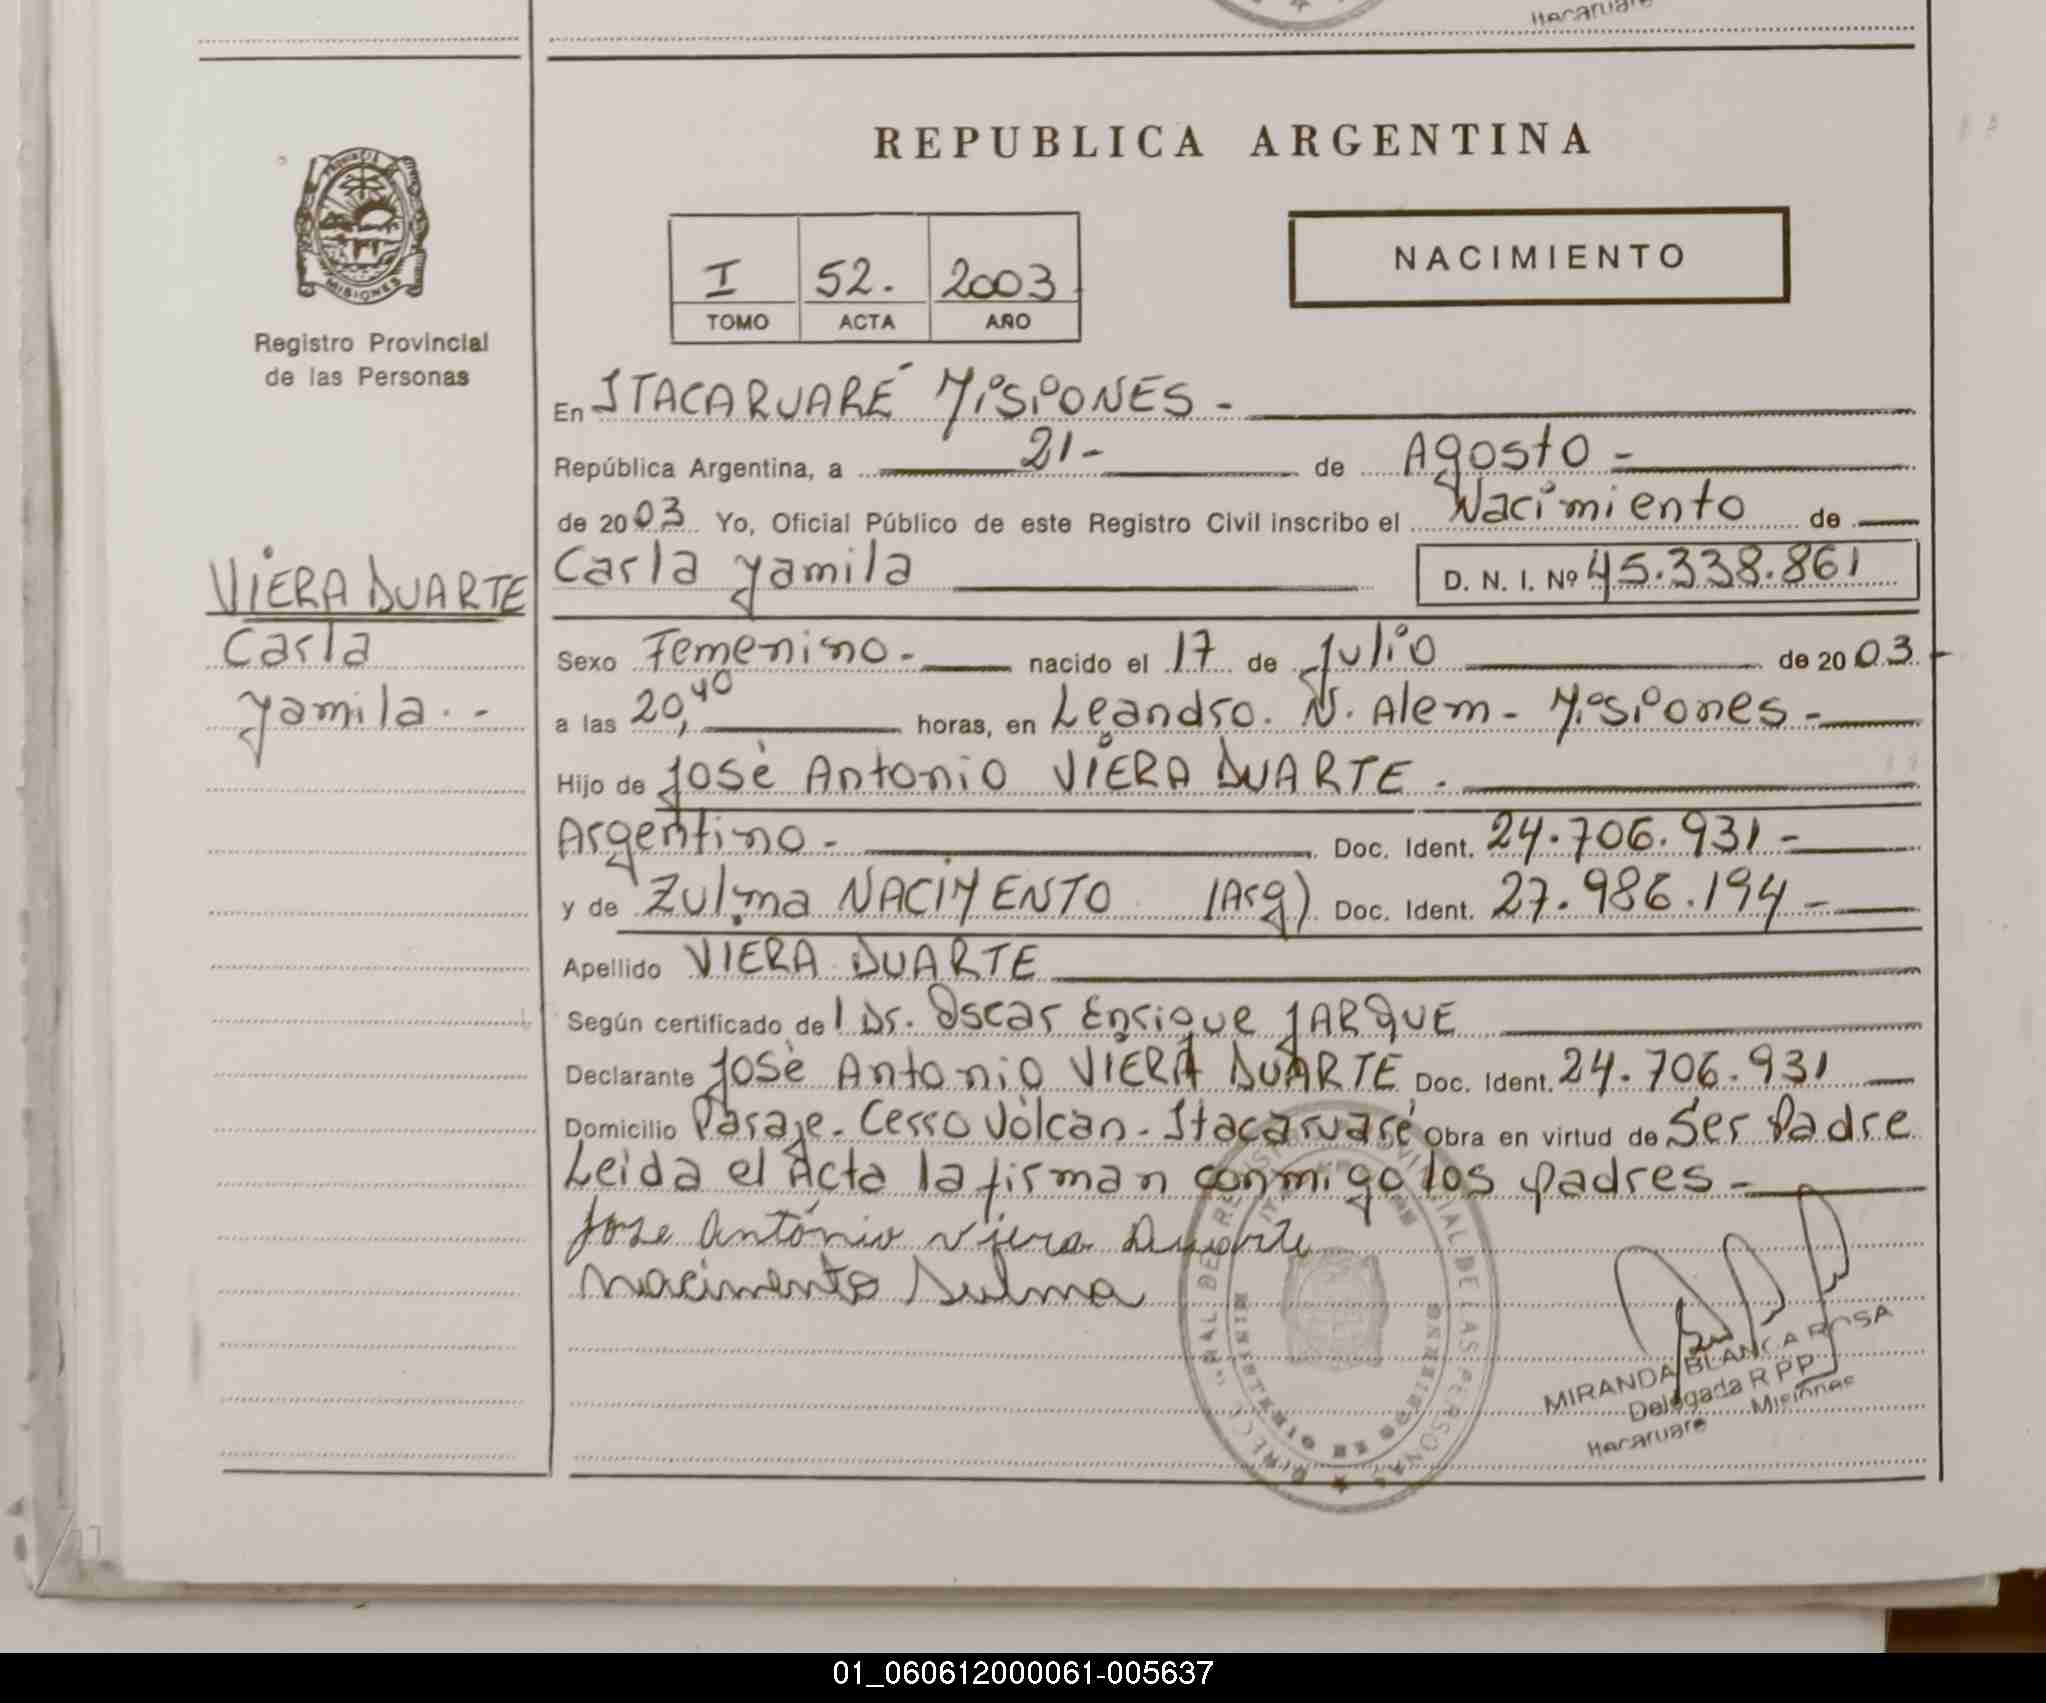 Itacaruare
REPUBLICA ARGENTINA
PROVINCIA DE
MISIONES
Registro Provincial
de las Personas
I 52. 2003
TOMO ACTA AÑO
NACIMIENTO
En ITACARUARÉ MISIONES -
República Argentina, a 21- de Agosto -
de 2003 Yo, Oficial Público de este Registro Civil inscribo el Nacimiento de
Carla Yamila D. N. I. Nº 45.338.861
VIERA DUARTE
Carla
Yamila. -
Sexo Femenino. - nacido el 17 de Julio de 2003 -
a las 20,40 horas, en Leandro. N. Alem - Misiones -
Hijo de José Antonio VIERA DUARTE .
Argentino - Doc. Ident. 24.706.931 -
y de Zulma NACIMENTO (Arg) Doc. Ident. 27.986.194 -
Apellido VIERA DUARTE
Según certificado de l Dr. Oscar Enrique JARQUE
Declarante José Antonio VIERA DUARTE Doc. Ident. 24.706.931
Domicilio Paraje - Cerro Vólcan - Itacaruaré Obra en virtud de Ser Padre
Leida el Acta la firman conmigo los padres -
Jose António Viera Duarte
Nacimento Sulma
MIRANDA BLANCA ROSA
Delegada R PP
Itacaruare Misiones
DE LAS PERSONAS
01_060612000061-005637